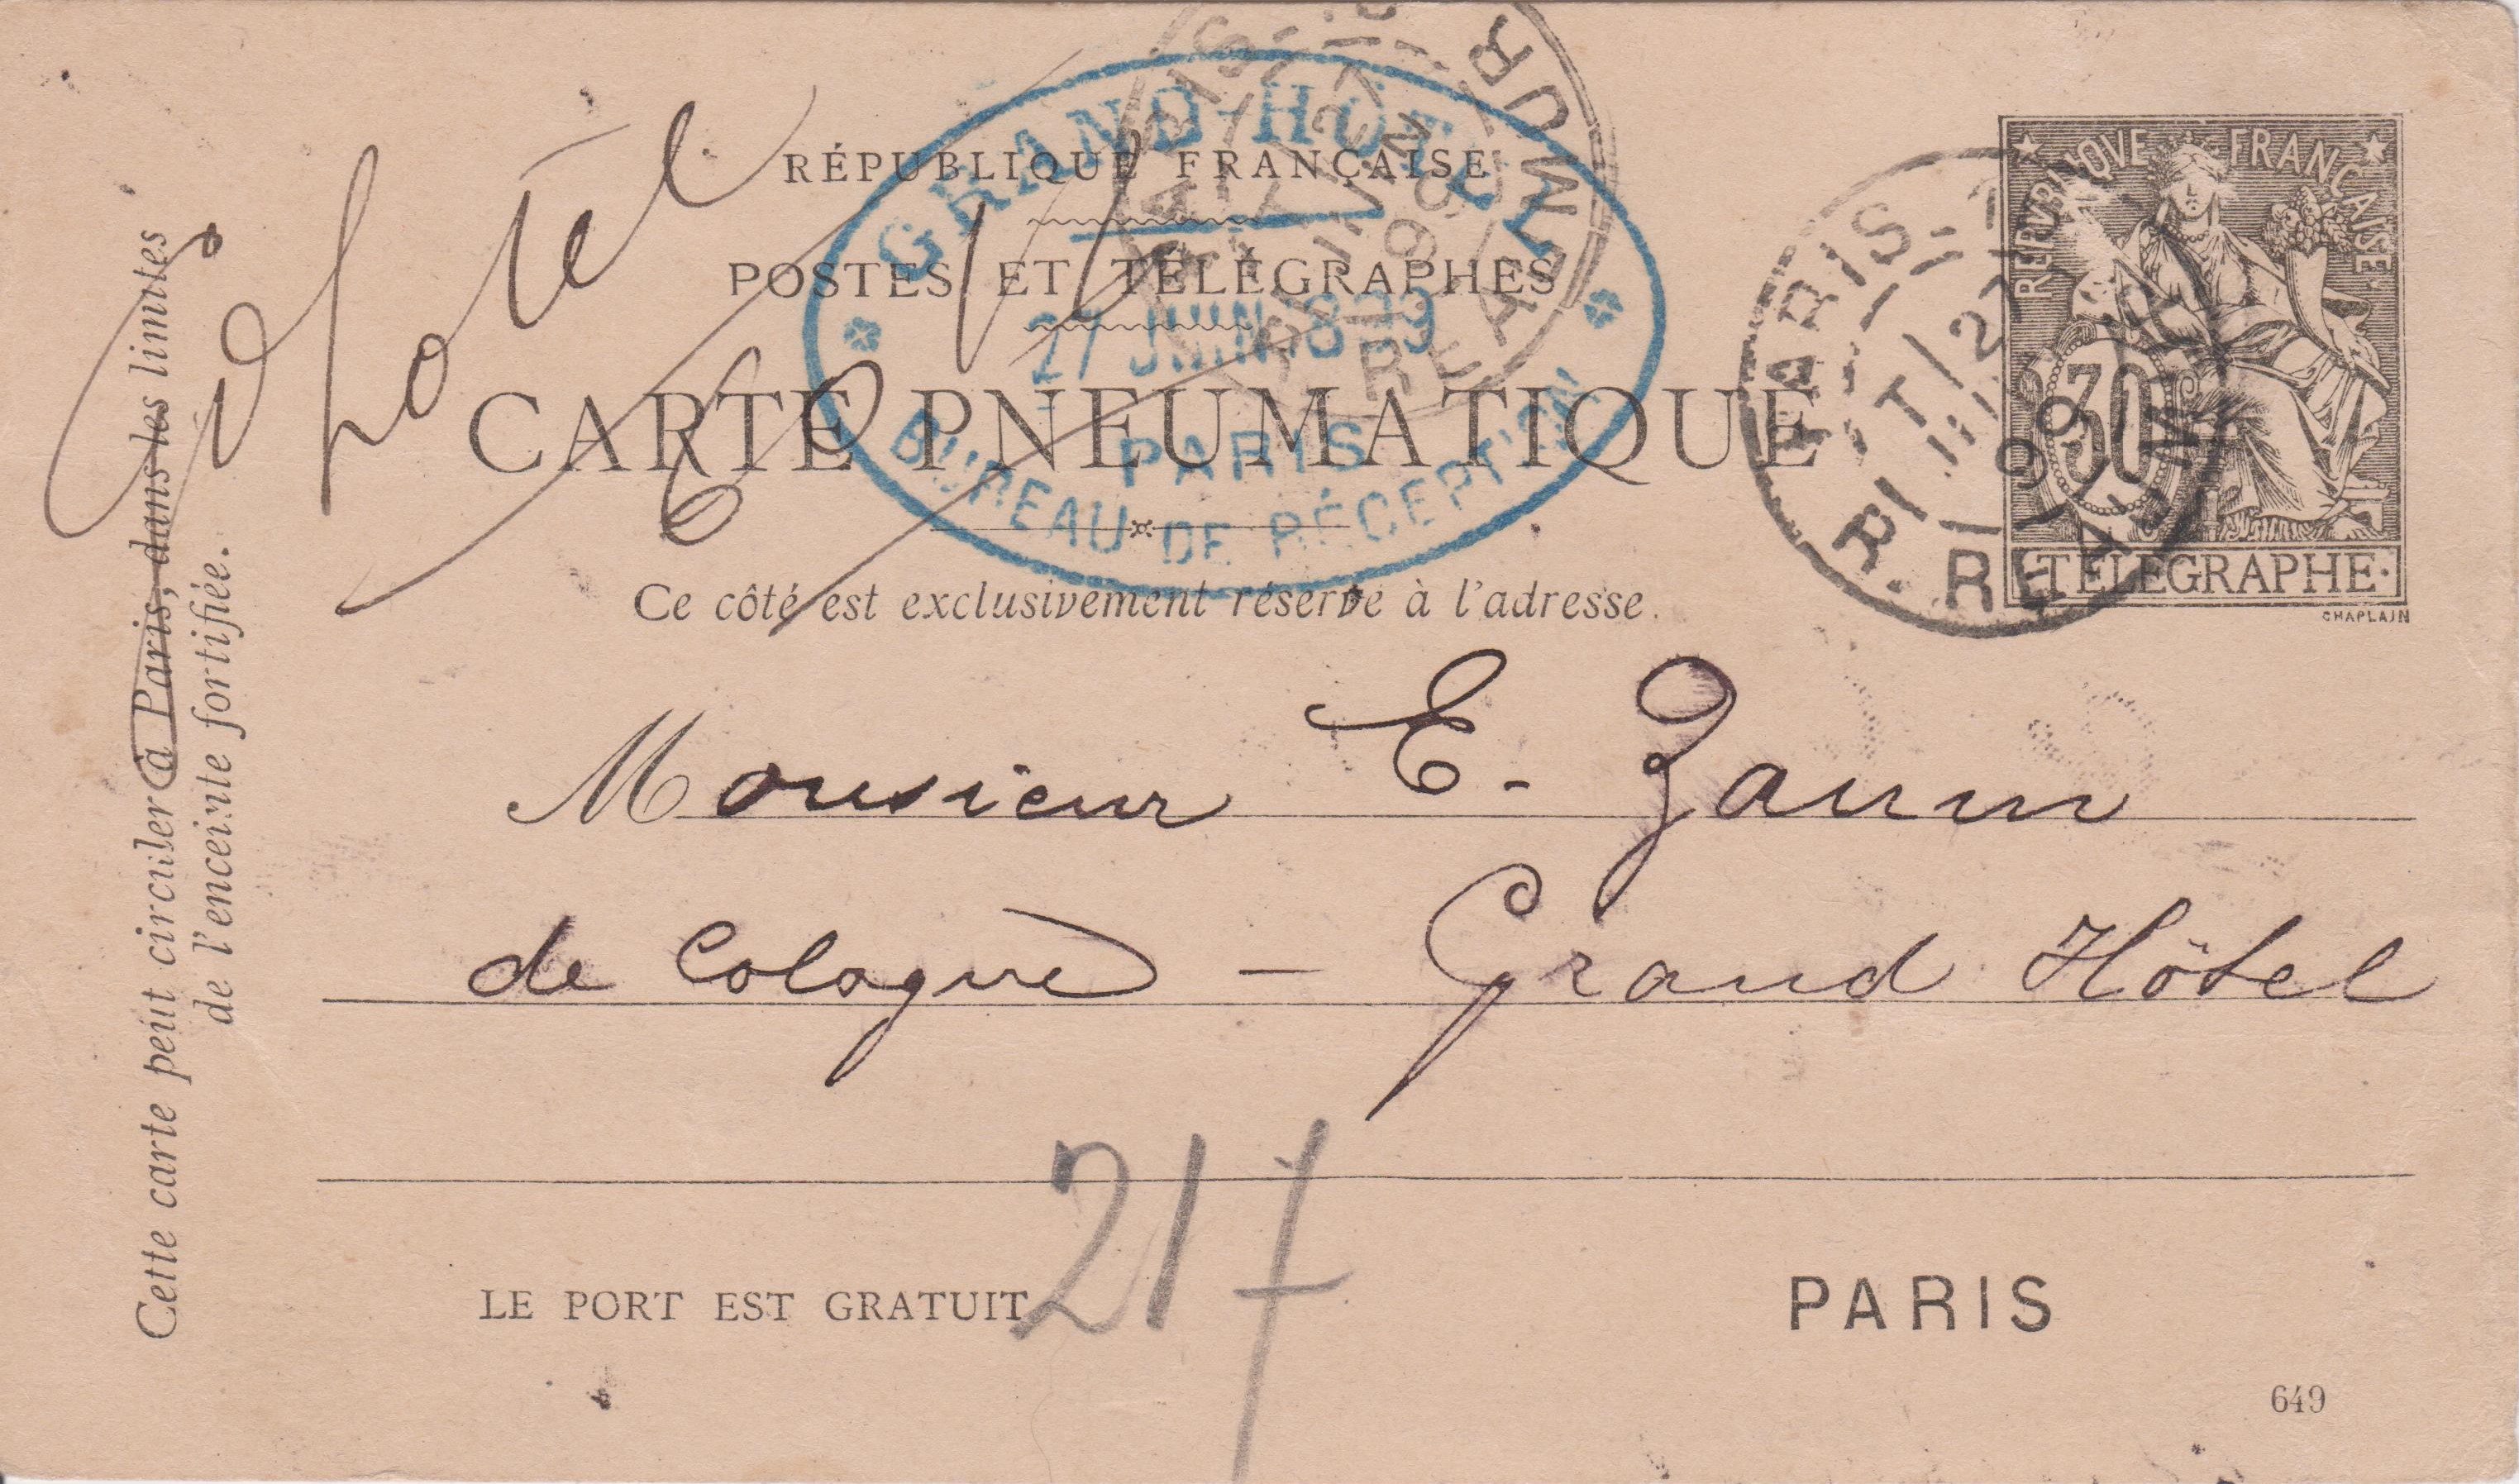 GRAND-HÔTEL
RÉPUBLIQUE FRANÇAISE
POSTES ET TÉLÉGRAPHES
27 JUIN 1899
CARTE PNEUMATIQUE
PARIS
BUREAU DE RÉCEPTION
Ce côté est exclusivement réservé à l'adresse.
REPVBLIQVE FRANÇAISE
30
TÉLÉGRAPHE
CHAPLAIN
PARIS
27
99
R. REAUMUR
PARIS
27
99
REAUMUR
hotel
Monsieur E. Zaun
de Cologne – Grand Hôtel
217
LE PORT EST GRATUIT
PARIS
649
Cette carte peut circuler à Paris, dans les limites
de l'enceinte fortifiée.